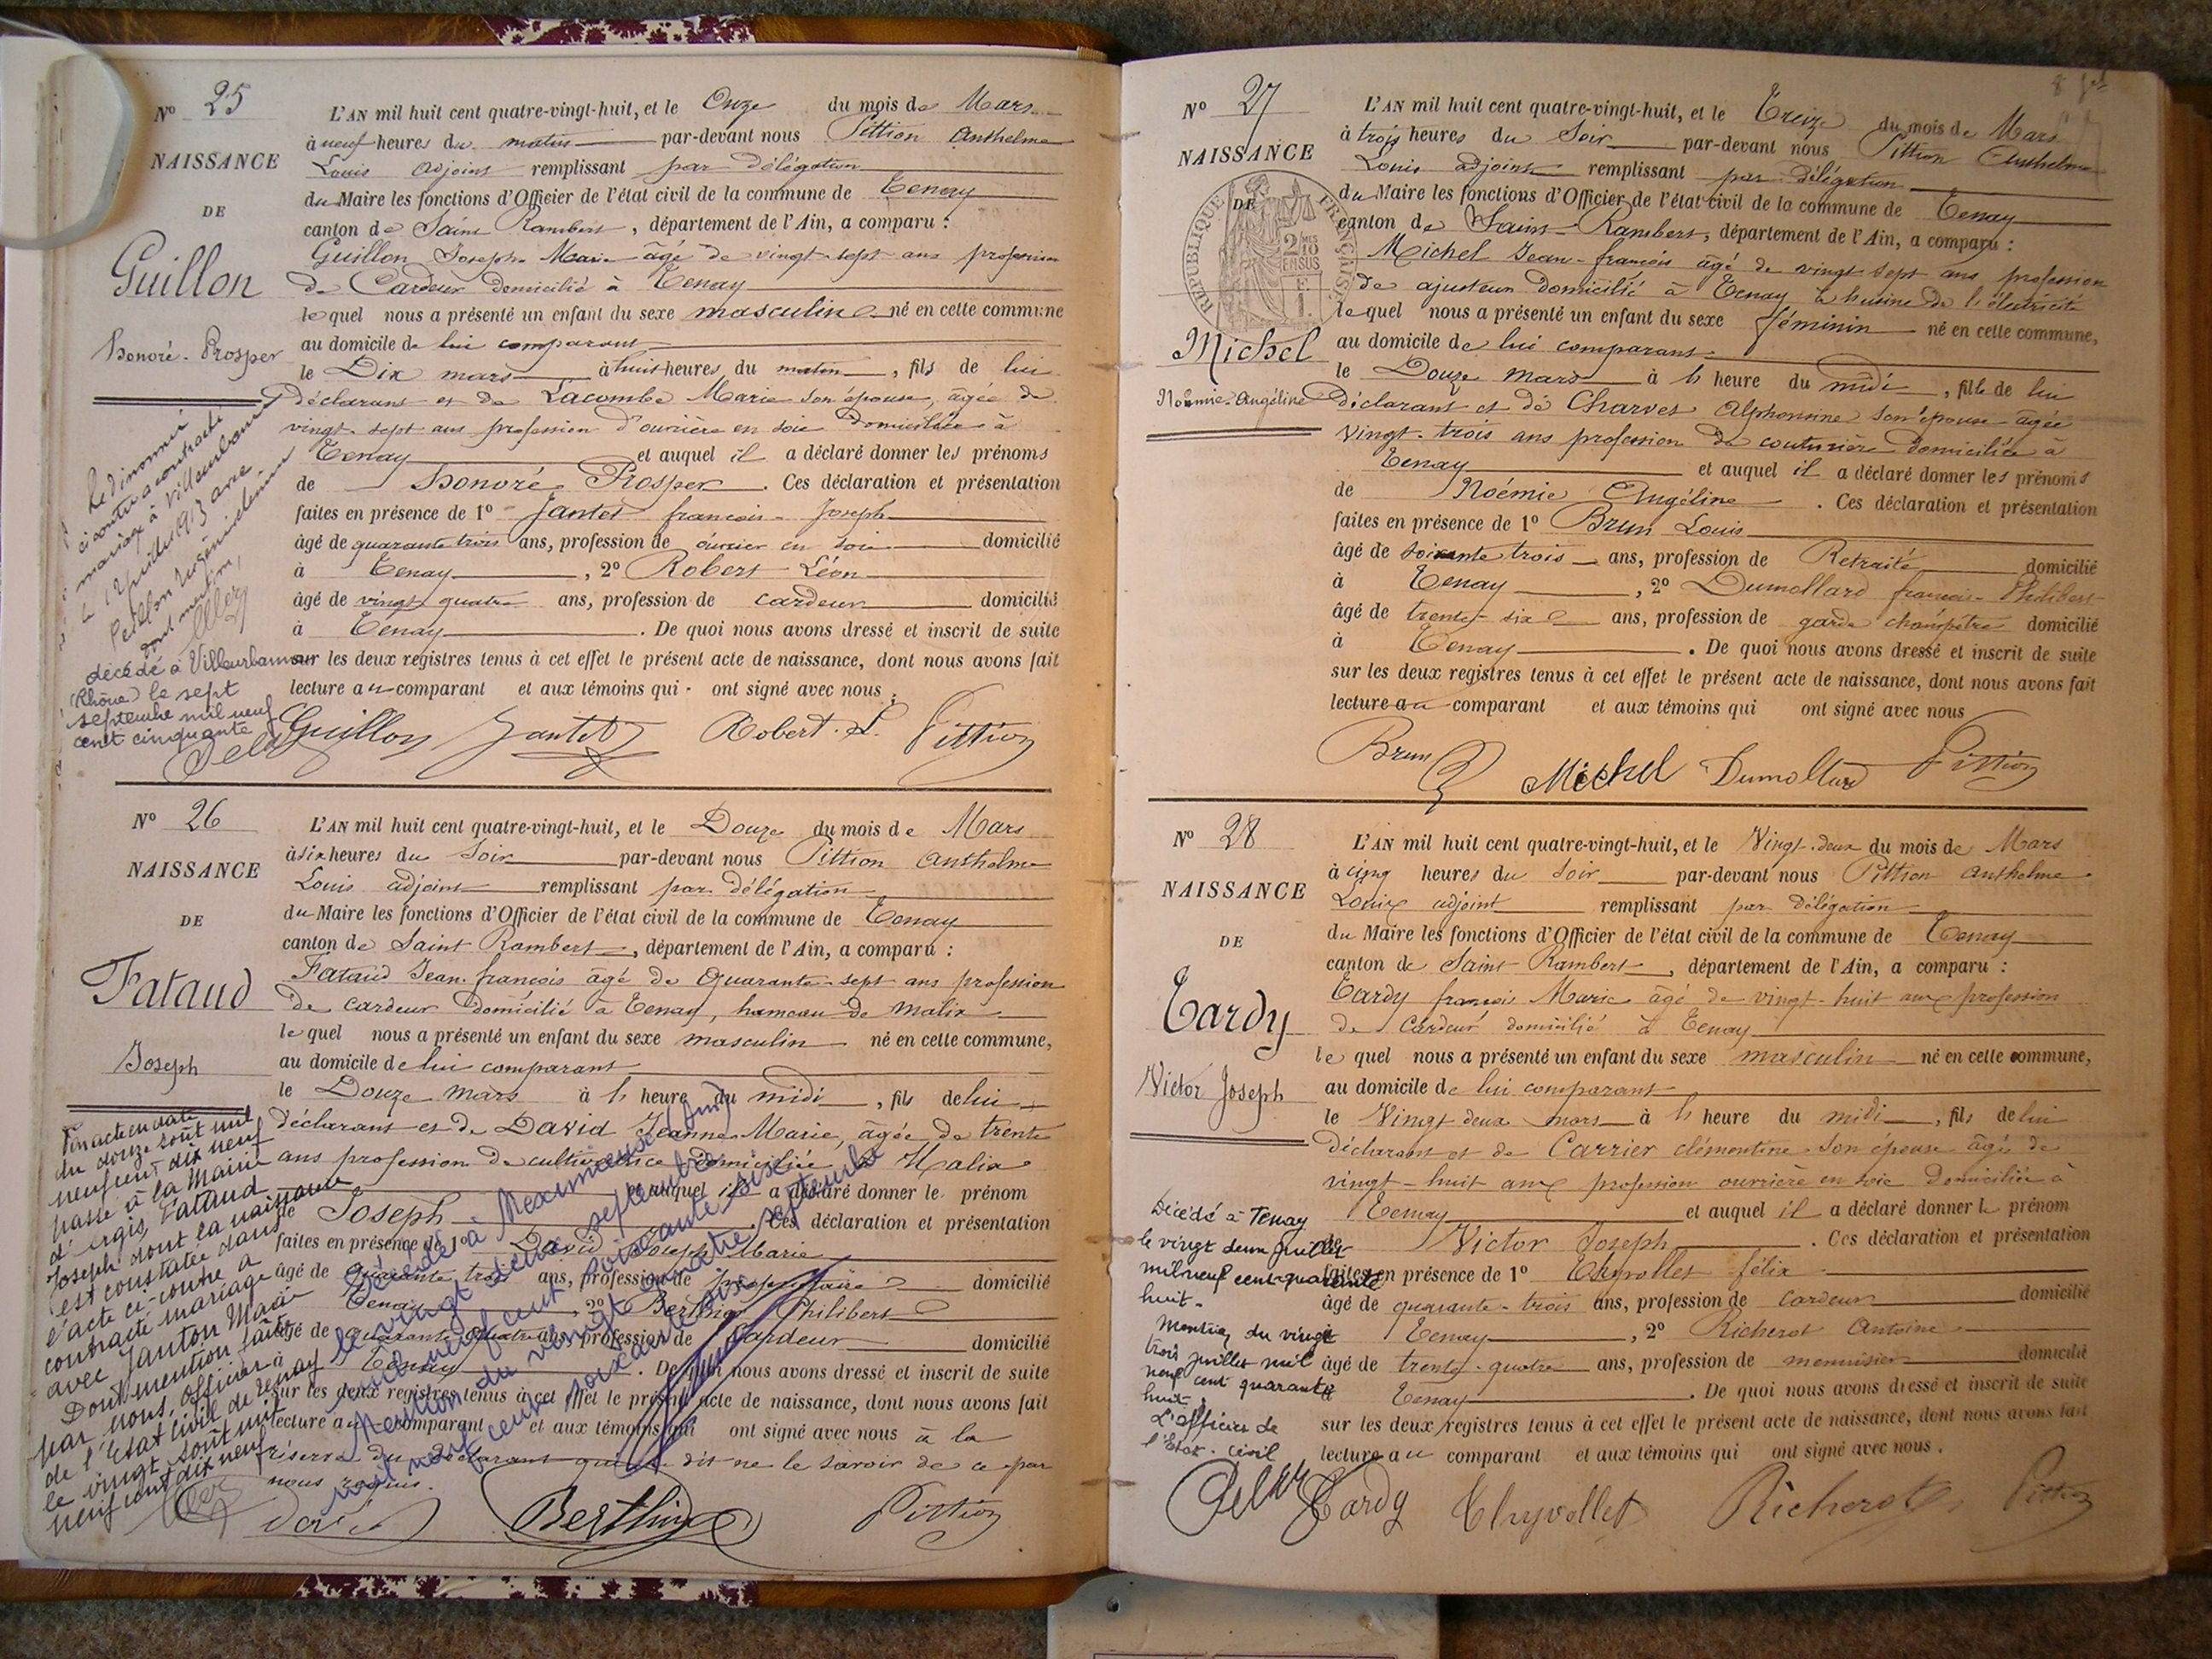 Nº 25
NAISSANCE
DE
Guillon
Honoré-Prosper
L'AN mil huit cent quatre-vingt-huit, et le Onze du mois de Mars
à neuf heures du matin par-devant nous Pittion Anthelme
Louis adjoint remplissant par délégation
du Maire les fonctions d'Officier de l'état civil de la commune de Tenay
canton de Saint Rambert, département de l'Ain, a comparu :
Guillon Joseph Marie âgé de vingt sept ans profession
de Cardeur domicilié à Tenay
lequel nous a présenté un enfant du sexe masculin né en cette commune
au domicile de lui comparant
le Dix mars à huit heures du matin, fils de lui
déclarant et de Lacombe Marie son épouse, âgée de
vingt-sept ans profession d'ouvrière en soie domiciliée à
Tenay et auquel il a déclaré donner les prénoms
de Honoré Prosper. Ces déclaration et présentation
faites en présence de 1º Jantet françois-Joseph
âgé de quarante trois ans, profession de ouvrier en soie domicilié
à Tenay, 2º Robert Léon
âgé de vingt quatre ans, profession de cardeur domicilié
à Tenay. De quoi nous avons dressé et inscrit de suite
sur les deux registres tenus à cet effet le présent acte de naissance, dont nous avons fait
lecture au comparant et aux témoins qui ont signé avec nous.
Guillon Jantet Robert. L. Pittion
Le dénommé
ci contre a contracté
mariage à Villeurbanne
le 12 juillet 1913 avec
dont mention,
décédé à Villeurbanne
(Rhône) le sept
septembre mil neuf
cent cinquante
Nº 26
NAISSANCE
DE
Fataud
Joseph
L'AN mil huit cent quatre-vingt-huit, et le Douze du mois de Mars
à six heures du soir par-devant nous Pittion Anthelme
Louis adjoint remplissant par délégation
du Maire les fonctions d'Officier de l'état civil de la commune de Tenay
canton de Saint Rambert, département de l'Ain, a comparu :
Fataud Jean-françois âgé de Quarante-sept ans profession
de cardeur domicilié à Tenay, hameau de Malix
lequel nous a présenté un enfant du sexe masculin né en cette commune,
au domicile de lui comparant
le Douze mars à h heure du midi, fils de lui
déclarant et de David Jeanne-Marie, âgée de trente
ans profession de cultivatrice domiciliée à Malix
et auquel il a déclaré donner le prénom
de Joseph. Ces déclaration et présentation
faites en présence de 1º David Joseph Marie
âgé de quarante trois ans, profession de propriétaire domicilié
Tenay, 2º Berthier Philibert
âgé de quarante quatre ans, profession de Cardeur domicilié
Tenay. De quoi nous avons dressé et inscrit de suite
sur les deux registres tenus à cet effet le présent acte de naissance, dont nous avons fait
lecture au comparant et aux témoins qui ont signé avec nous à la
réserve du déclarant qui a dit ne le savoir de ce par
nous requis.
David Berthier Pittion
acte en date
du douze août mil
neuf cent dix neuf
passé à la Mairie
d'Argis, Fataud
Joseph dont la naissance
est constatée dans
l'acte ci-contre a
contracté mariage
avec Janton Marie
Dont mention faite
par nous, officier
de l'Etat civil de Tenay
le vingt août mil
neuf cent dix neuf
Décédé à Meximieux (Ain)
le vingt deux septembre
mil neuf cent soixante six
Mention du vingt quatre septembre
mil neuf cent soixante six
Nº 27
NAISSANCE
DE
Michel
Noémie-Angéline
RÉPUBLIQUE FRANÇAISE
L'AN mil huit cent quatre-vingt-huit, et le Treize du mois de Mars
à trois heures du Soir par-devant nous Pittion Anthelme
Louis adjoint remplissant par délégation
du Maire les fonctions d'Officier de l'état civil de la commune de Tenay
canton de Saint-Rambert, département de l'Ain, a comparu :
Michel Jean-françois âgé de vingt sept ans profession
de ajusteur domicilié à Tenay à l'usine de l'électricité
lequel nous a présenté un enfant du sexe féminin né en cette commune,
au domicile de lui comparant
le Douze mars à h heure du midi, fille de lui
déclarant et de Charvet Alphonsine son épouse âgée
vingt-trois ans profession de couturière domiciliée à
Tenay et auquel il a déclaré donner les prénoms
de Noémie Angéline. Ces déclaration et présentation
faites en présence de 1º Brun Louis
âgé de soixante trois ans, profession de Retraité domicilié
à Tenay, 2º Dumollard françois-Philibert
âgé de trente-six ans, profession de garde champêtre domicilié
à Tenay. De quoi nous avons dressé et inscrit de suite
sur les deux registres tenus à cet effet le présent acte de naissance, dont nous avons fait
lecture au comparant et aux témoins qui ont signé avec nous
Brun Michel Dumollard Pittion
Nº 28
NAISSANCE
DE
Tardy
Victor Joseph
L'AN mil huit cent quatre-vingt-huit, et le Vingt-deux du mois de Mars
à cinq heures du soir par-devant nous Pittion Anthelme
Louis adjoint remplissant par délégation
du Maire les fonctions d'Officier de l'état civil de la commune de Tenay
canton de Saint Rambert, département de l'Ain, a comparu :
Tardy françois Marie âgé de vingt-huit ans profession
de Cardeur domicilié à Tenay
lequel nous a présenté un enfant du sexe masculin né en cette commune,
au domicile de lui comparant
le Vingt deux mars à h heure du midi, fils de lui
déclarant et de Carrier clémentine son épouse âgée de
vingt-huit ans profession ouvrière en soie domiciliée à
Tenay et auquel il a déclaré donner le prénom
de Victor Joseph. Ces déclaration et présentation
faites en présence de 1º félix
âgé de quarante-trois ans, profession de cardeur domicilié
Tenay, 2º Richerot Antoine
âgé de trente-quatre ans, profession de menuisier domicilié
à Tenay. De quoi nous avons dressé et inscrit de suite
sur les deux registres tenus à cet effet le présent acte de naissance, dont nous avons fait
lecture au comparant et aux témoins qui ont signé avec nous.
Tardy Richerot Pittion
Décédé à Tenay
le vingt deux juillet
mil neuf cent quarante
huit.
Mention du vingt
trois juillet mil
neuf cent quarante
huit.
L'officier de
l'Etat-civil